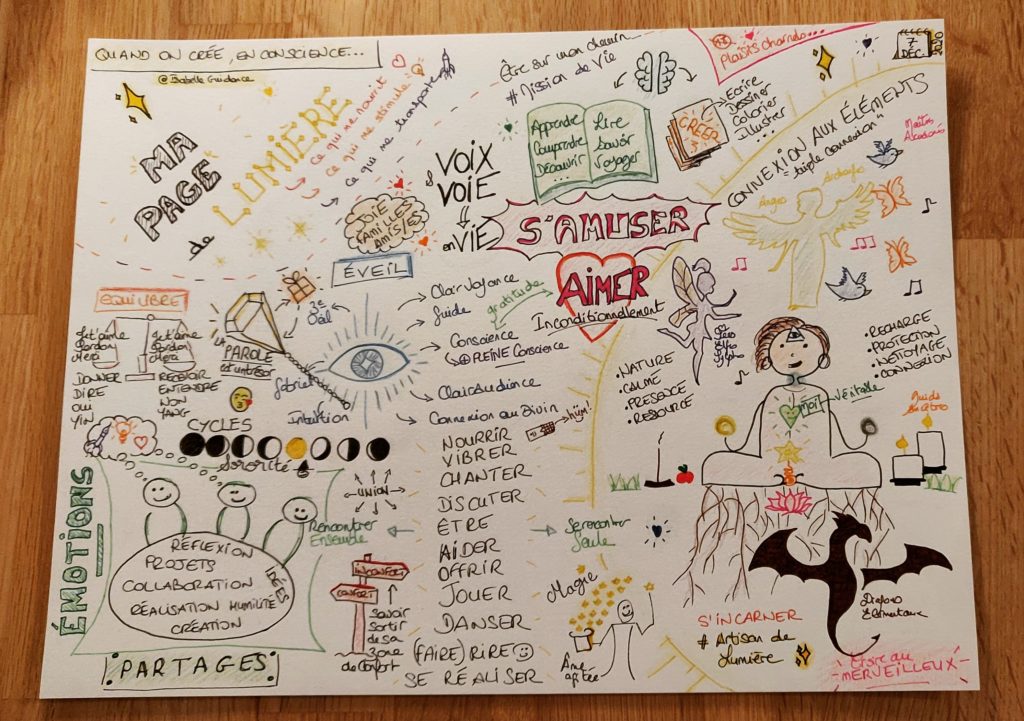 QUAND ON CRÉE, EN CONSCIENCE...
@Isabelle Guidance
MA
PAGE
de
LUMIÈRE
Ce qui me nourrit
Ce qui me stimule
Ce qui me transporte
Être sur mon chemin
# Mission de Vie
Plaisirs charnels...
7
DÉC
2020
Apprendre
Comprendre
Découvrir
...
Lire
Savoir
Voyager
CRÉER
Ecrire
Dessiner
Colorier
Illustrer
...
CONNEXION AUX ÉLÉMENTS
"triple connexion"
Anges
Archanges
VOIX
VOIE
en VIE
JOIE
FAMILLES
AMIS/ES
S'AMUSER
AIMER
Inconditionnellement
gratitude
ÉVEIL
3e
Oeil
Clair Voyance
Guide
Conscience
REINE Conscience
ClairAudience
Connexion au Divin
hum!
Gabriel
Intuition
LA
PAROLE
est un trésor
EQUILIBRE
Je t'aime
Pardon
Merci
Je t'aime
Pardon
Merci
DONNER
DIRE
OUI
YIN
RECEVOIR
ENTENDRE
NON
YANG
CYCLES
Sororité
• NATURE
• CALME
• PRESENCE
• RESSOURCE
• RECHARGE
• PROTECTION
• NETTOYAGE
• CONNEXION
MOI
Véritable
ÉMOTIONS
RÉFLEXION
PROJETS
COLLABORATION
IDÉES
RÉALISATION HUMILITÉ
CRÉATION
PARTAGES
UNION
Rencontrer
Ensemble
Se rencontrer
Seule
INCONFORT
CONFORT
Savoir
sortir
de sa
zone
de confort
NOURRIR
VIBRER
CHANTER
DISCUTER
ÊTRE
AIDER
OFFRIR
JOUER
DANSER
(FAIRE) RIRE
SE RÉALISER
Magie
S'INCARNER
# Artisan de
Lumière
Croire au
MERVEILLEUX